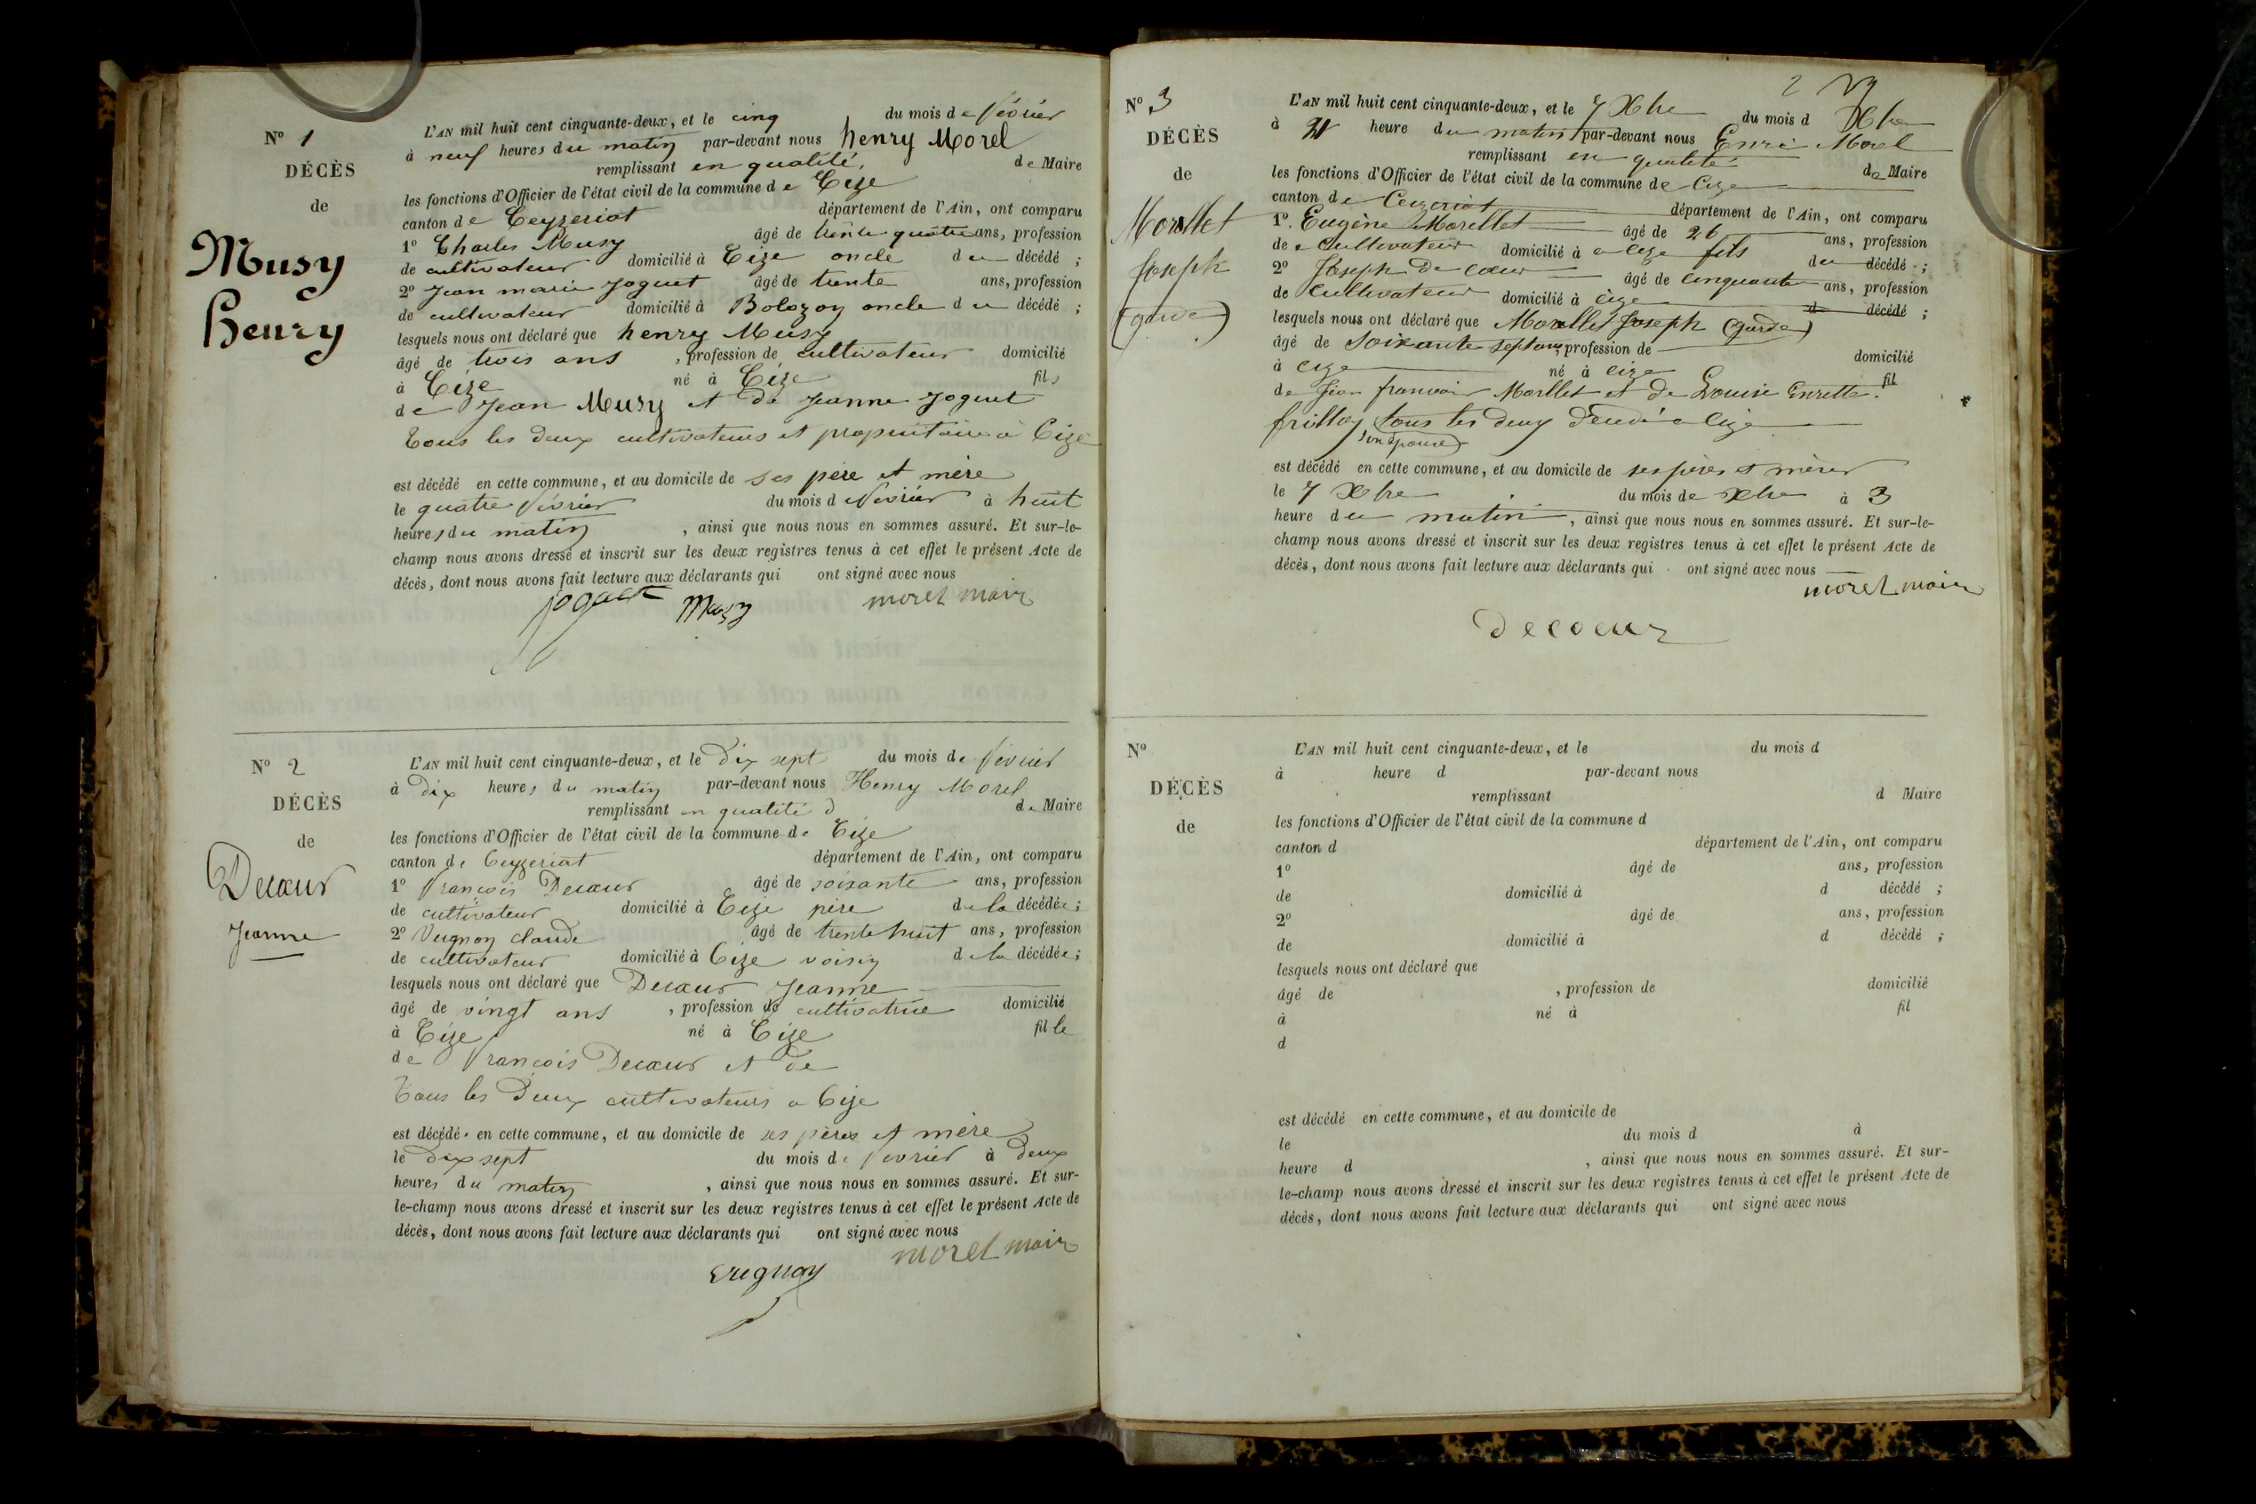 N° 1
DÉCÈS
de
Musy
Henry
L'AN mil huit cent cinquante-deux, et le cinq du mois de février
à neuf heures du matin par-devant nous henry Morel
remplissant en qualité de Maire
les fonctions d'Officier de l'état civil de la commune de Cize
canton de Ceyzeriat département de l'Ain, ont comparu
1° Charles Musy âgé de trente quatre ans, profession
de cultivateur domicilié à Cize oncle du décédé ;
2° Jean marie Joguet âgé de trente ans, profession
de cultivateur domicilié à Bolozon oncle du décédé ;
lesquels nous ont déclaré que henry Musy
âgé de trois ans , profession de cultivateur domicilié
à Cize né à Cize fils
de Jean Musy et de Jeanne Joguet
tous les deux cultivateurs et propriétaire à Cize
est décédé en cette commune, et au domicile de ses père et mère
le quatre février du mois de février à huit
heures du matin , ainsi que nous nous en sommes assuré. Et sur-le-
champ nous avons dressé et inscrit sur les deux registres tenus à cet effet le présent Acte de
décès, dont nous avons fait lecture aux déclarants qui ont signé avec nous
joguet Musy morel maire
N° 2
DÉCÈS
de
Decœur
Jeanne
L'AN mil huit cent cinquante-deux, et le dix sept du mois de février
à dix heures du matin par-devant nous Henry Morel
remplissant en qualité d de Maire
les fonctions d'Officier de l'état civil de la commune de Cize
canton de Ceyzeriat département de l'Ain, ont comparu
1° françois Decœur âgé de soixante ans, profession
de cultivateur domicilié à Cize père de la décédée ;
2° Vugnon claude âgé de trente huit ans, profession
de cultivateur domicilié à Cize voisin de la décédée ;
lesquels nous ont déclaré que Decœur Jeanne
âgé de vingt ans , profession de cultivatrice domicilié
à Cize né à Cize fille
de françois Decœur et de
tous les deux cultivateurs a Cize
est décédé en cette commune, et au domicile de ses pères et mère
le dix sept du mois de fevrier à deux
heures du matin , ainsi que nous nous en sommes assuré. Et sur-
le-champ nous avons dressé et inscrit sur les deux registres tenus à cet effet le présent Acte de
décès, dont nous avons fait lecture aux déclarants qui ont signé avec nous
morel maire
2
N° 3
DÉCÈS
de
Morellet
Joseph
(garde)
L'AN mil huit cent cinquante-deux, et le 7 Xbre du mois d Xbre
à heure du matin par-devant nous Enri Morel
remplissant en qualité de Maire
les fonctions d'Officier de l'état civil de la commune de Cize
canton de Ceizeriat département de l'Ain, ont comparu
1° Eugène Morellet âgé de 26 ans, profession
de cultivateur domicilié à cize fils du décédé ;
2° Joseph De cœur âgé de cinquante ans, profession
de cultivateur domicilié à cize d décédé ;
lesquels nous ont déclaré que Morellet Joseph (garde)
âgé de soixante sept ans, profession de domicilié
à cize né à cize fil
de Jean francois Morllet et de Louise Enrette
tous les deux à cize
son épouse
est décédé en cette commune, et au domicile de ses pères et mères
le 7 Xbre du mois de Xbre à 3
heure du matin , ainsi que nous nous en sommes assuré. Et sur-le-
champ nous avons dressé et inscrit sur les deux registres tenus à cet effet le présent Acte de
décès, dont nous avons fait lecture aux déclarants qui ont signé avec nous
morel maire
decoeur
N°
DÉCÈS
de
L'AN mil huit cent cinquante-deux, et le du mois d
à heure d par-devant nous
remplissant d Maire
les fonctions d'Officier de l'état civil de la commune d
canton d département de l'Ain, ont comparu
1° âgé de ans, profession
de domicilié à d décédé ;
2° âgé de ans, profession
de domicilié à d décédé ;
lesquels nous ont déclaré que
âgé de , profession de domicilié
à né à fil
d
est décédé en cette commune, et au domicile de
le du mois d à
heure d , ainsi que nous nous en sommes assuré. Et sur-
le-champ nous avons dressé et inscrit sur les deux registres tenus à cet effet le présent Acte de
décès, dont nous avons fait lecture aux déclarants qui ont signé avec nous